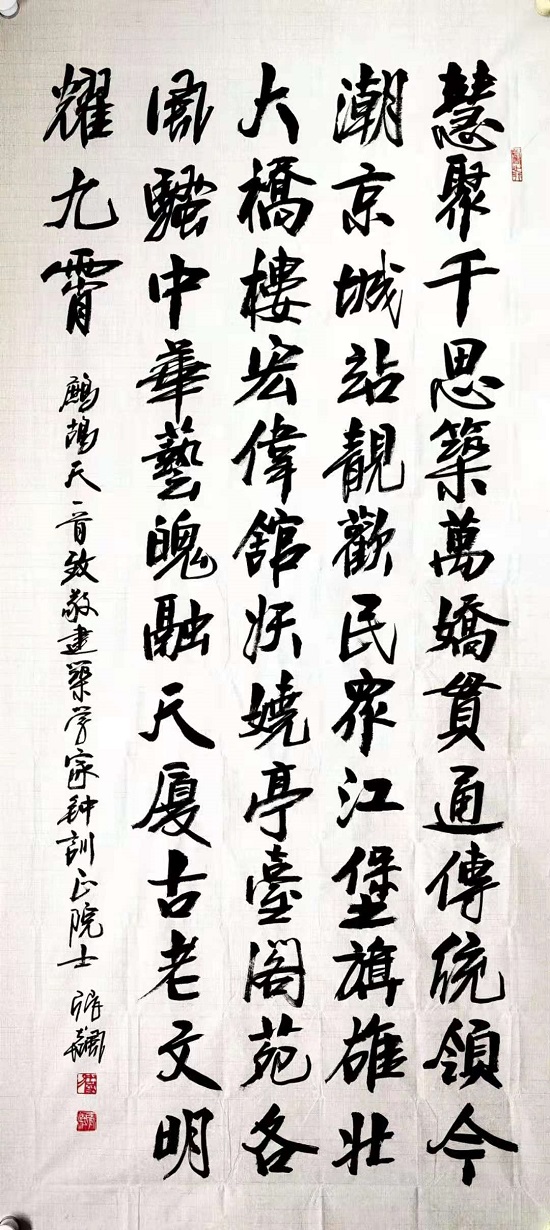 慧聚千思築萬嬌貫通傳統領今
潮京城站靚歡民眾江堡旗雄壯
大橋樓宏偉館妖嬈亭臺閣苑各
風騷中華藝魄融天廈古老文明
耀九霄 鷓鴣天一首致敬建築学家钟訓正院士